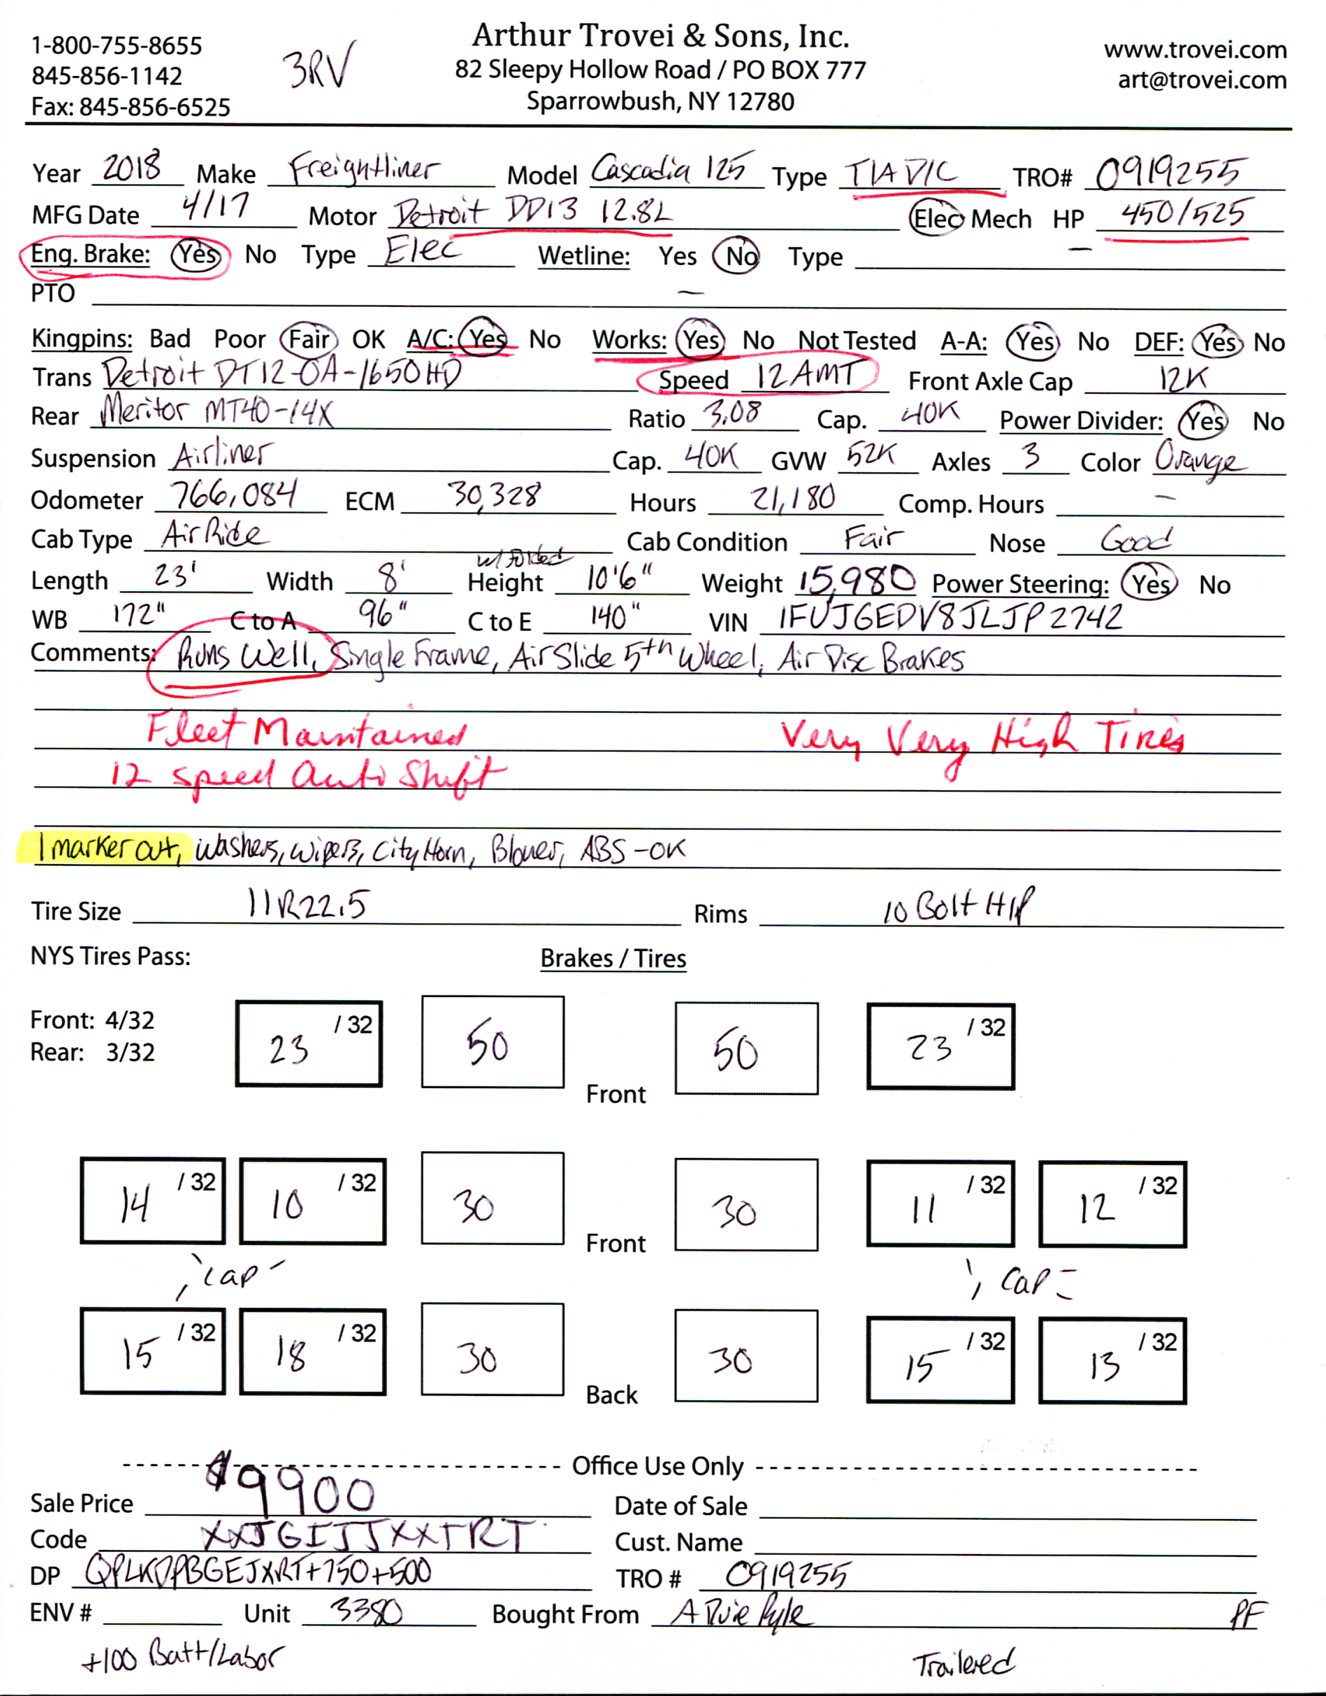 1-800-755-8655
845-856-1142
Fax: 845-856-6525
3RV
Arthur Trovei & Sons, Inc.
82 Sleepy Hollow Road / PO BOX 777
Sparrowbush, NY 12780
www.trovei.com
art@trovei.com
Year 2018 Make Freightliner Model Cascadia 125 Type TIA D/C TRO# 0919255
MFG Date 4/17 Motor Detroit DD13 12.8L Elec Mech HP 450/525
Eng. Brake: Yes No Type Elec Wetline: Yes No Type —
PTO —
Kingpins: Bad Poor Fair OK A/C: Yes No Works: Yes No Not Tested A-A: Yes No DEF: Yes No
Trans Detroit DT12-OA-1650HD Speed 12 AMT Front Axle Cap 12K
Rear Meritor MT40-14X Ratio 3.08 Cap. 40K Power Divider: Yes No
Suspension Airliner Cap. 40K GVW 52K Axles 3 Color Orange
Odometer 766,084 ECM 30,328 Hours 21,180 Comp. Hours —
Cab Type Air Ride Cab Condition Fair Nose Good
Length 23' Width 8' w/ Folded Height 10'6" Weight 15,980 Power Steering: Yes No
WB 172" C to A 96" C to E 140" VIN 1FUJGEDV8JLJP2742
Comments: Runs Well, Single Frame, Air Slide 5th Wheel, Air Disc Brakes
Fleet Maintained Very Very High Tires
12 speed Auto Shift
1 marker out, washers, wipers, City Horn, Blower, ABS - OK
Tire Size 11R22.5 Rims 10 Bolt HP
NYS Tires Pass: Brakes / Tires
Front: 4/32
Rear: 3/32
23 /32 50 Front 50 23 /32
14 /32 10 /32 30 Front 30 11 /32 12 /32
, Cap - , Cap -
15 /32 18 /32 30 Back 30 15 /32 13 /32
Office Use Only
Sale Price $9900 Date of Sale
Code XXJGIJJXXTRT Cust. Name
DP QPLKDPBGEJXRT+750+500 TRO # 0919255
ENV # Unit 3380 Bought From A Duie Pyle PF
+100 Batt/Labor Trailered